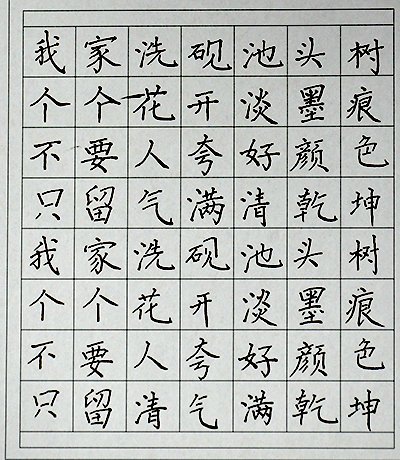 我家洗砚池头树
个个花开淡墨痕
不要人夸好颜色
只留气满清乾坤
我家洗砚池头树
个个花开淡墨痕
不要人夸好颜色
只留清气满乾坤